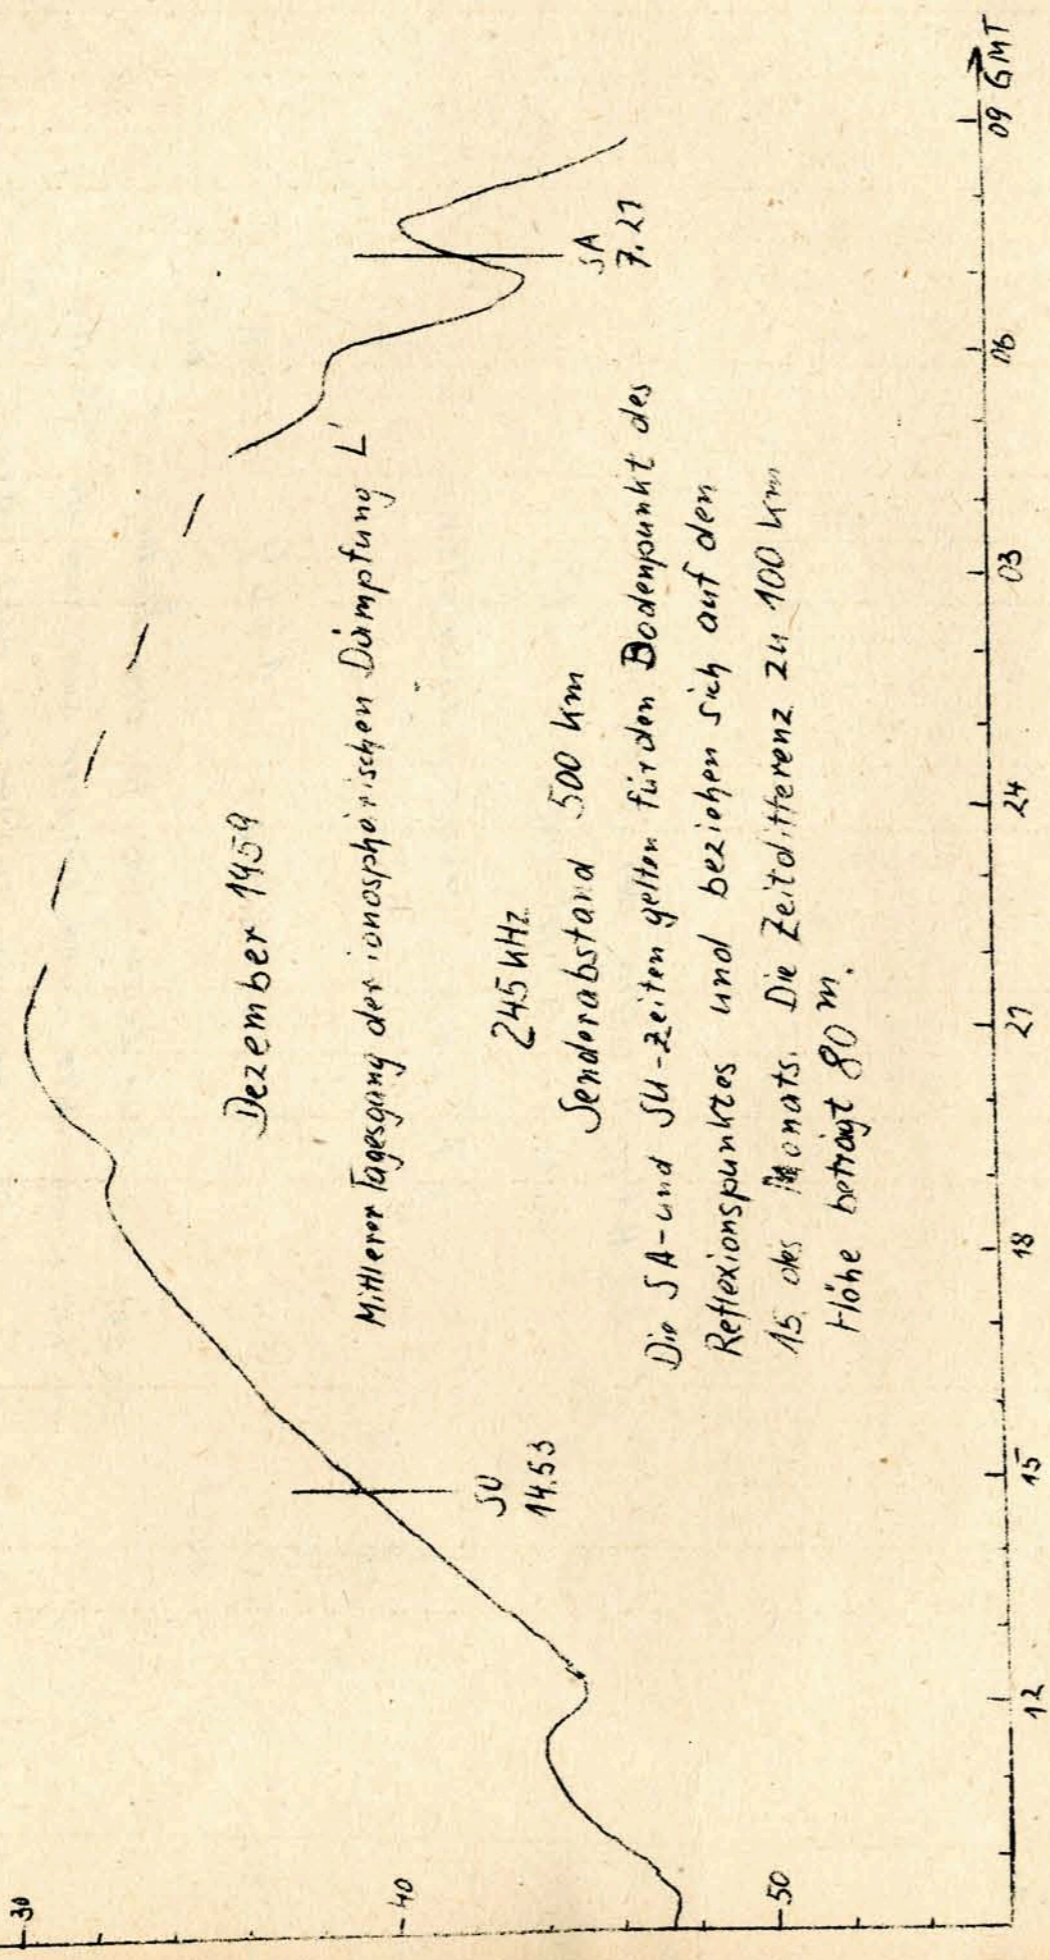 -30
-40
-50
Dezember 1959
Mittlerer Tagesgang der ionosphärischen Dämpfung L'
245 kHz
Senderabstand 500 km
SU
14.53
SA
7.21
Die SA- und SU-Zeiten gelten für den Bodenpunkt des
Reflexionspunktes und beziehen sich auf den
15. des Monats. Die Zeitdifferenz zu 100 km
Höhe beträgt 80 m.
12 15 18 21 24 03 06 09 GMT